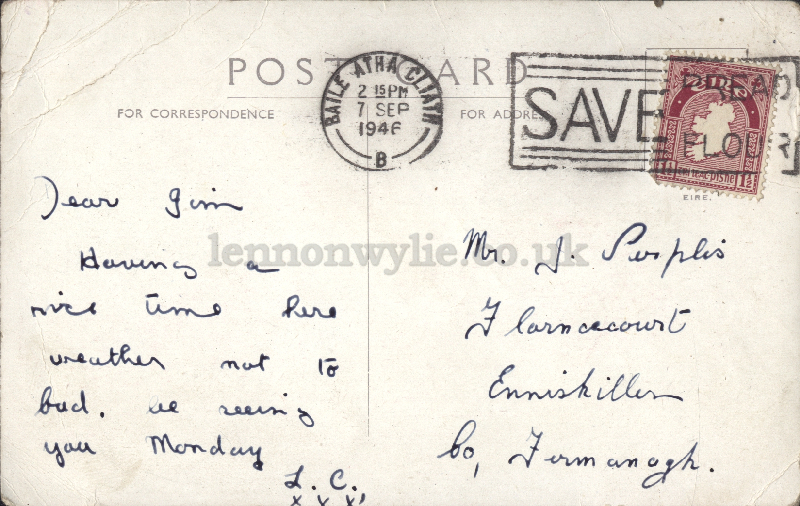 POST CARD
FOR CORRESPONDENCE
FOR ADDRESS
BAILE ATHA CLIATH
2 15 PM
7 SEP
1946
B
SAVE BREAD
FLOUR
EIRE.
lennonwylie.co.uk
Dear Jim
Having a
nice time here
weather not to
bad. be seeing
you Monday
L. C.
x x x
Mr. J.
Flarncecourt
Enniskillen
Co, Fermanagh.